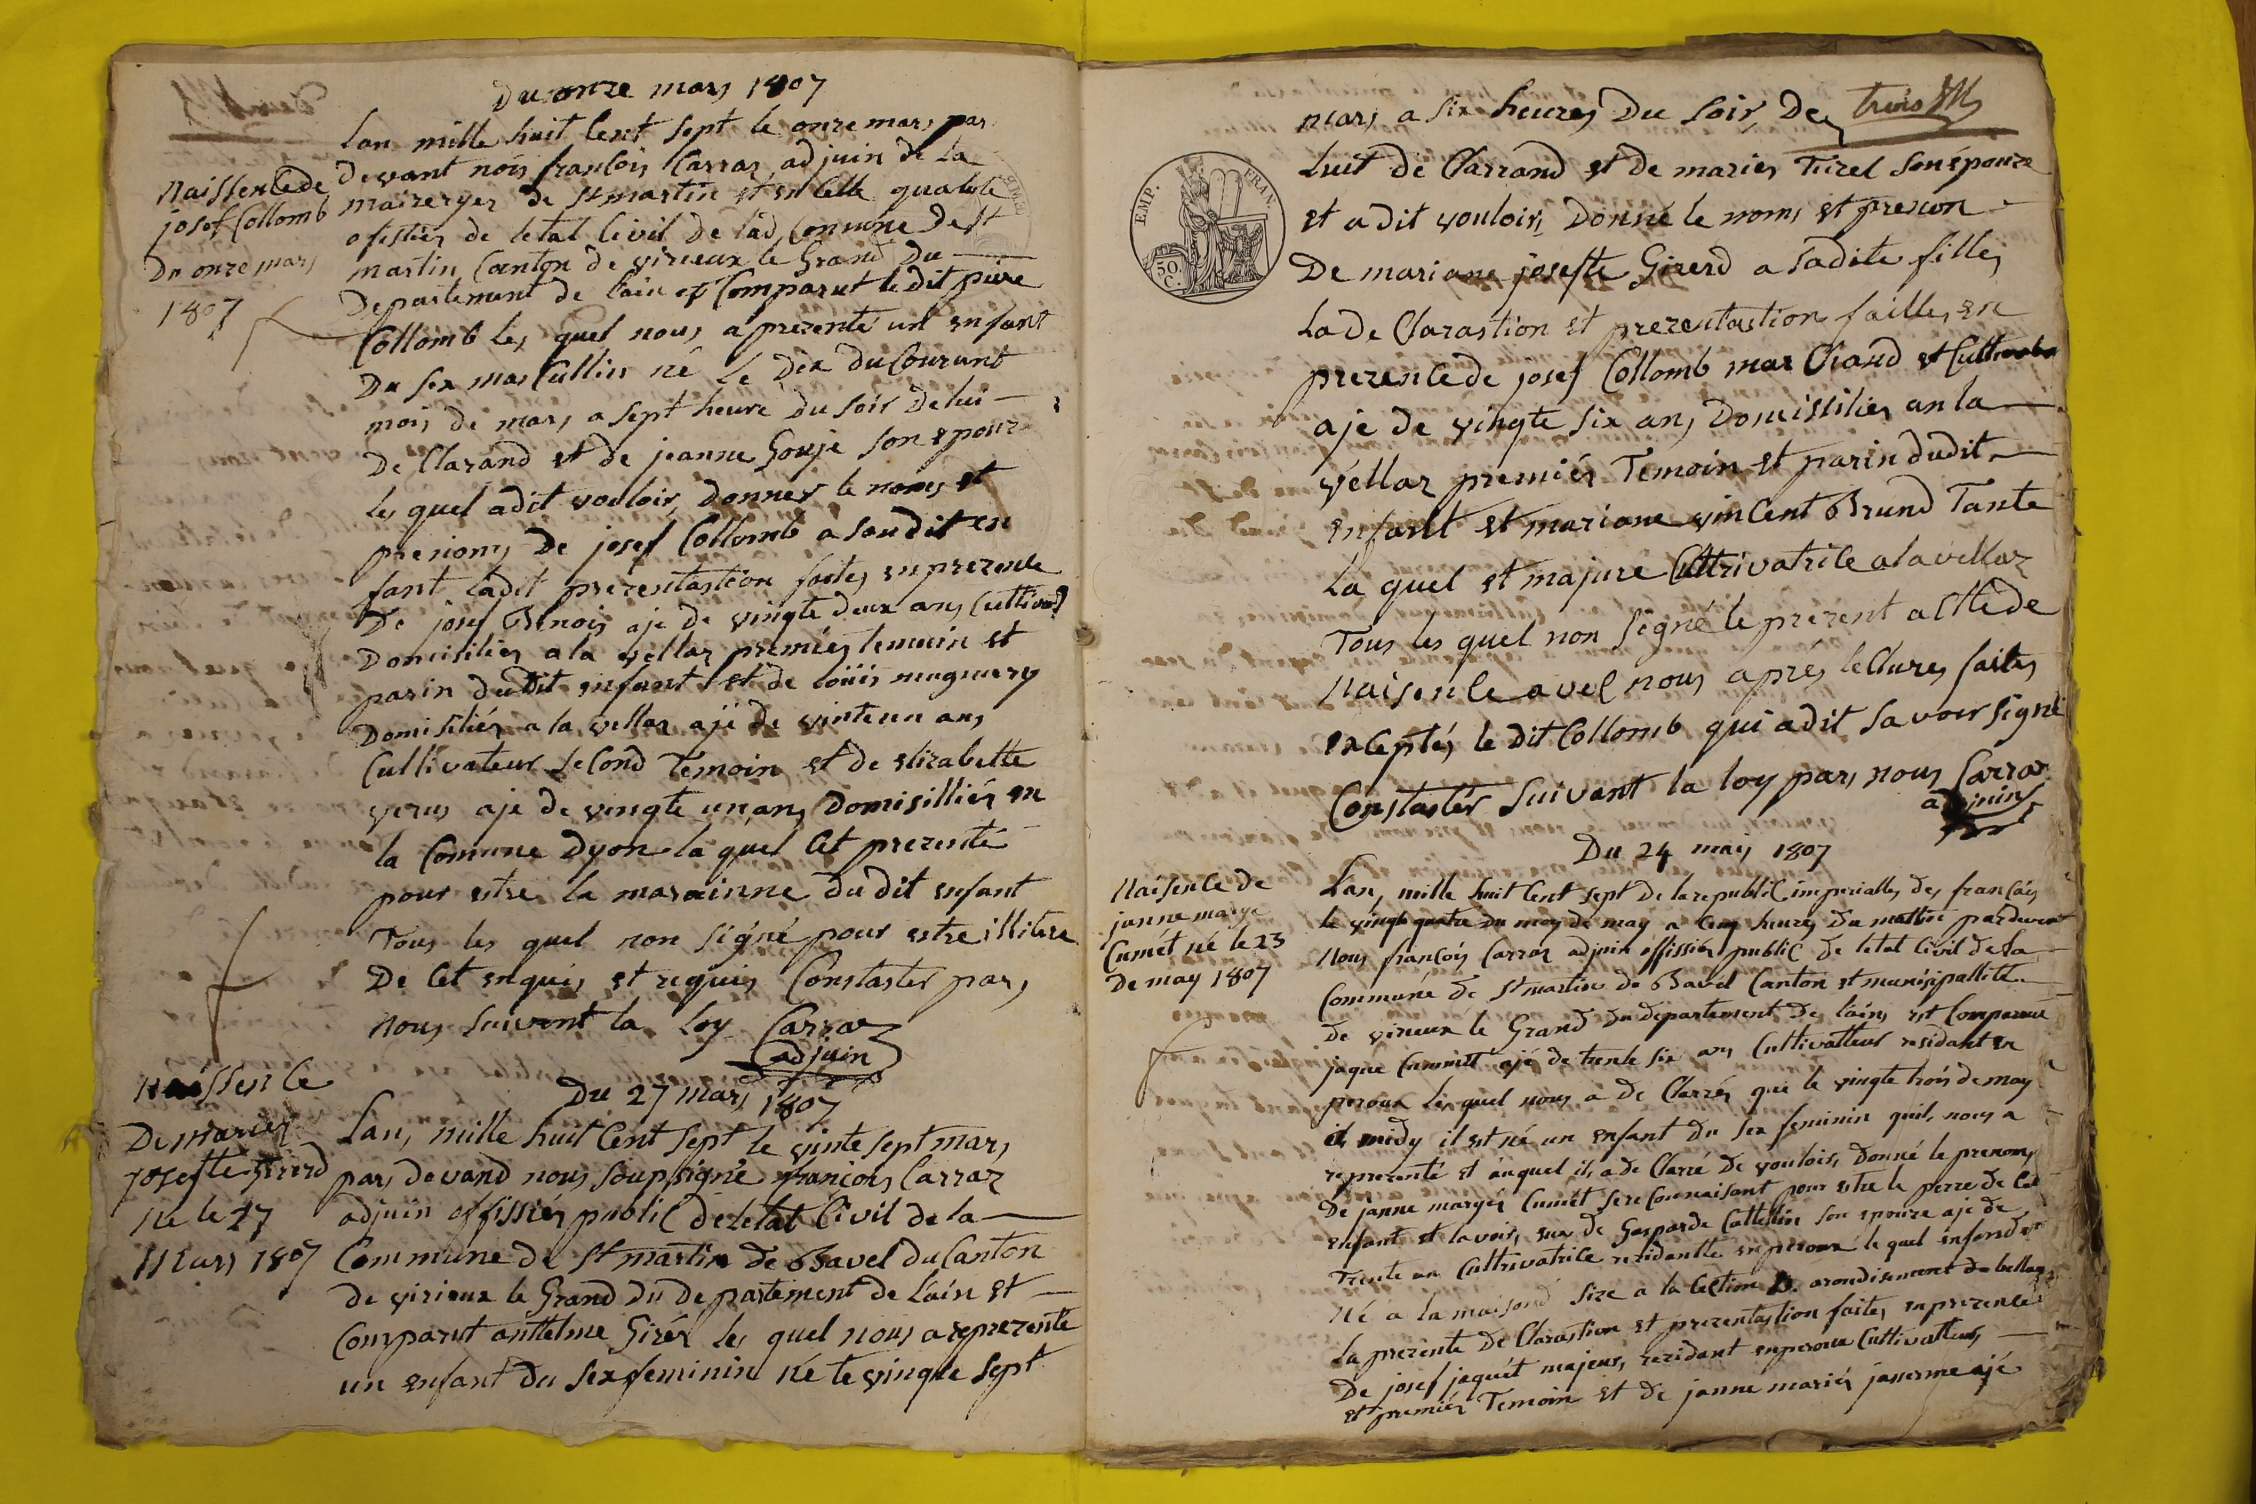 Du onze mars 1807
Naissence de
josef Collomb
Du onze mars
1807
Lan mille huit Cent sept le onze mars par
devant nous francois Carraz adjuin de la
maireryes de st martin et en Celle qualité
ofisties de letat Civil de lad Comune De st
martin Canton de virieux le Grand Du
Departement de lain est Comparut le dit
Collomb les quel nous a prezenté un enfant
Du sex masCullin né le Dix du Courant
mois de mars a sept heure du soir de lui
De Clarand et de jeanne Gouje son epouze
les quel a dit vouloir donner le noms et
prenoms De josef Collomb a son dit en
fant ladit prezentastion faites en prezence
De josef Benois aje de vingte deux ans Cultivad
Domisilies a la vellaz premiés temoin et
parin dudit enfant et de loüis mugniery
Domisiliés a la vellaz ajé de vinte un ans
Cullivateur seCond Temoin et de elizabette
verus aje de vingte un ans Domisilliés en
la Comune Dyon la quel Cet prezenté
pour estre la marainne du dit enfant
Tous les quel non signé pour estre illitere
De Cet enquis et requis Constaster pars
nous suivent la loy Carraz
adjuin
Du 27 mars 1807
Naissence
De maries
josefte Girerd
Né le 27
Mars 1807
Lan, mille huit Cent sept le vinte sept mars
pars devand nous soupsigné francois Carraz
adjuin offissiés publiC de letat Civil de la
Commune de St martin de Bavel du Canton
de virieux le Grand Du Departement de Lain et
Comparut anttelme Girer les quel nous a reprezenté
un enfant du sex feminin né le vingte sept
trois
mars a six heures Du soir De
Luit de Clarrand et de maries Tirel son épouze
et a dit vouloirs Donné le noms et prenon
De mariane josefte Girerd a sadite filles
La de Clarastion et prezentastion faittes en
prezence de josef Collomb mar Chand et
aje de vingte six ans Domissiliés an la
véllaz premiés Témoin et parin dudit
enfant et mariane vinCent Brund Tante
La quel et majure Culttrivatrice a la vellaz
Tous les quel non signé le prézent actte de
Naisence avel nous aprés leClures faites
exCeptés le dit Collomb qui a dit savoir signé
Constastér suivant la loy pars nous Carraz
adjuin
EMP. FRAN.
50. C.
Du 24 mais 1807
Naisence de
janne marye
Cumét né le 23
De may 1807
Lan, mille huit Cent sept de la republiC imperialles des francois
le vingte quatre du moy de may a Cinq heures du mattin pardevent
Nous françois Carraz adjuin offissiés publiC de letat Civil de la
Communé de St martin de Bavel Canton et munisipallité
de virieux le Grand du departement de Lains est Comparue
jaque Cumett ajé de trente six ans Cultivatteur residant en
peroux les quel nous a de Clarrés que le vingte trois de may
a midy il est né un enfant du sex feminin quil, nous a
reprezenté et auquel ils a de Clarré de voulois, Donné le prenoms
De janne maryés Cumét se reConnaisant pour estre le perre de Cet
enfant et lavoir, eux de Gasparde Cattellin son epouze aje de
Trente un Culttrivatrice rezidantte en peroux le quel enfand
Né a la maisond size a la Cection B. arondisement de bellay
La prezente de Clarastion et prezentastion faites en prezence
De josef jaquét majeur, rezidant en peroux Cultivatteurs
et premiés Temoin et de janne mariés janerme ajé